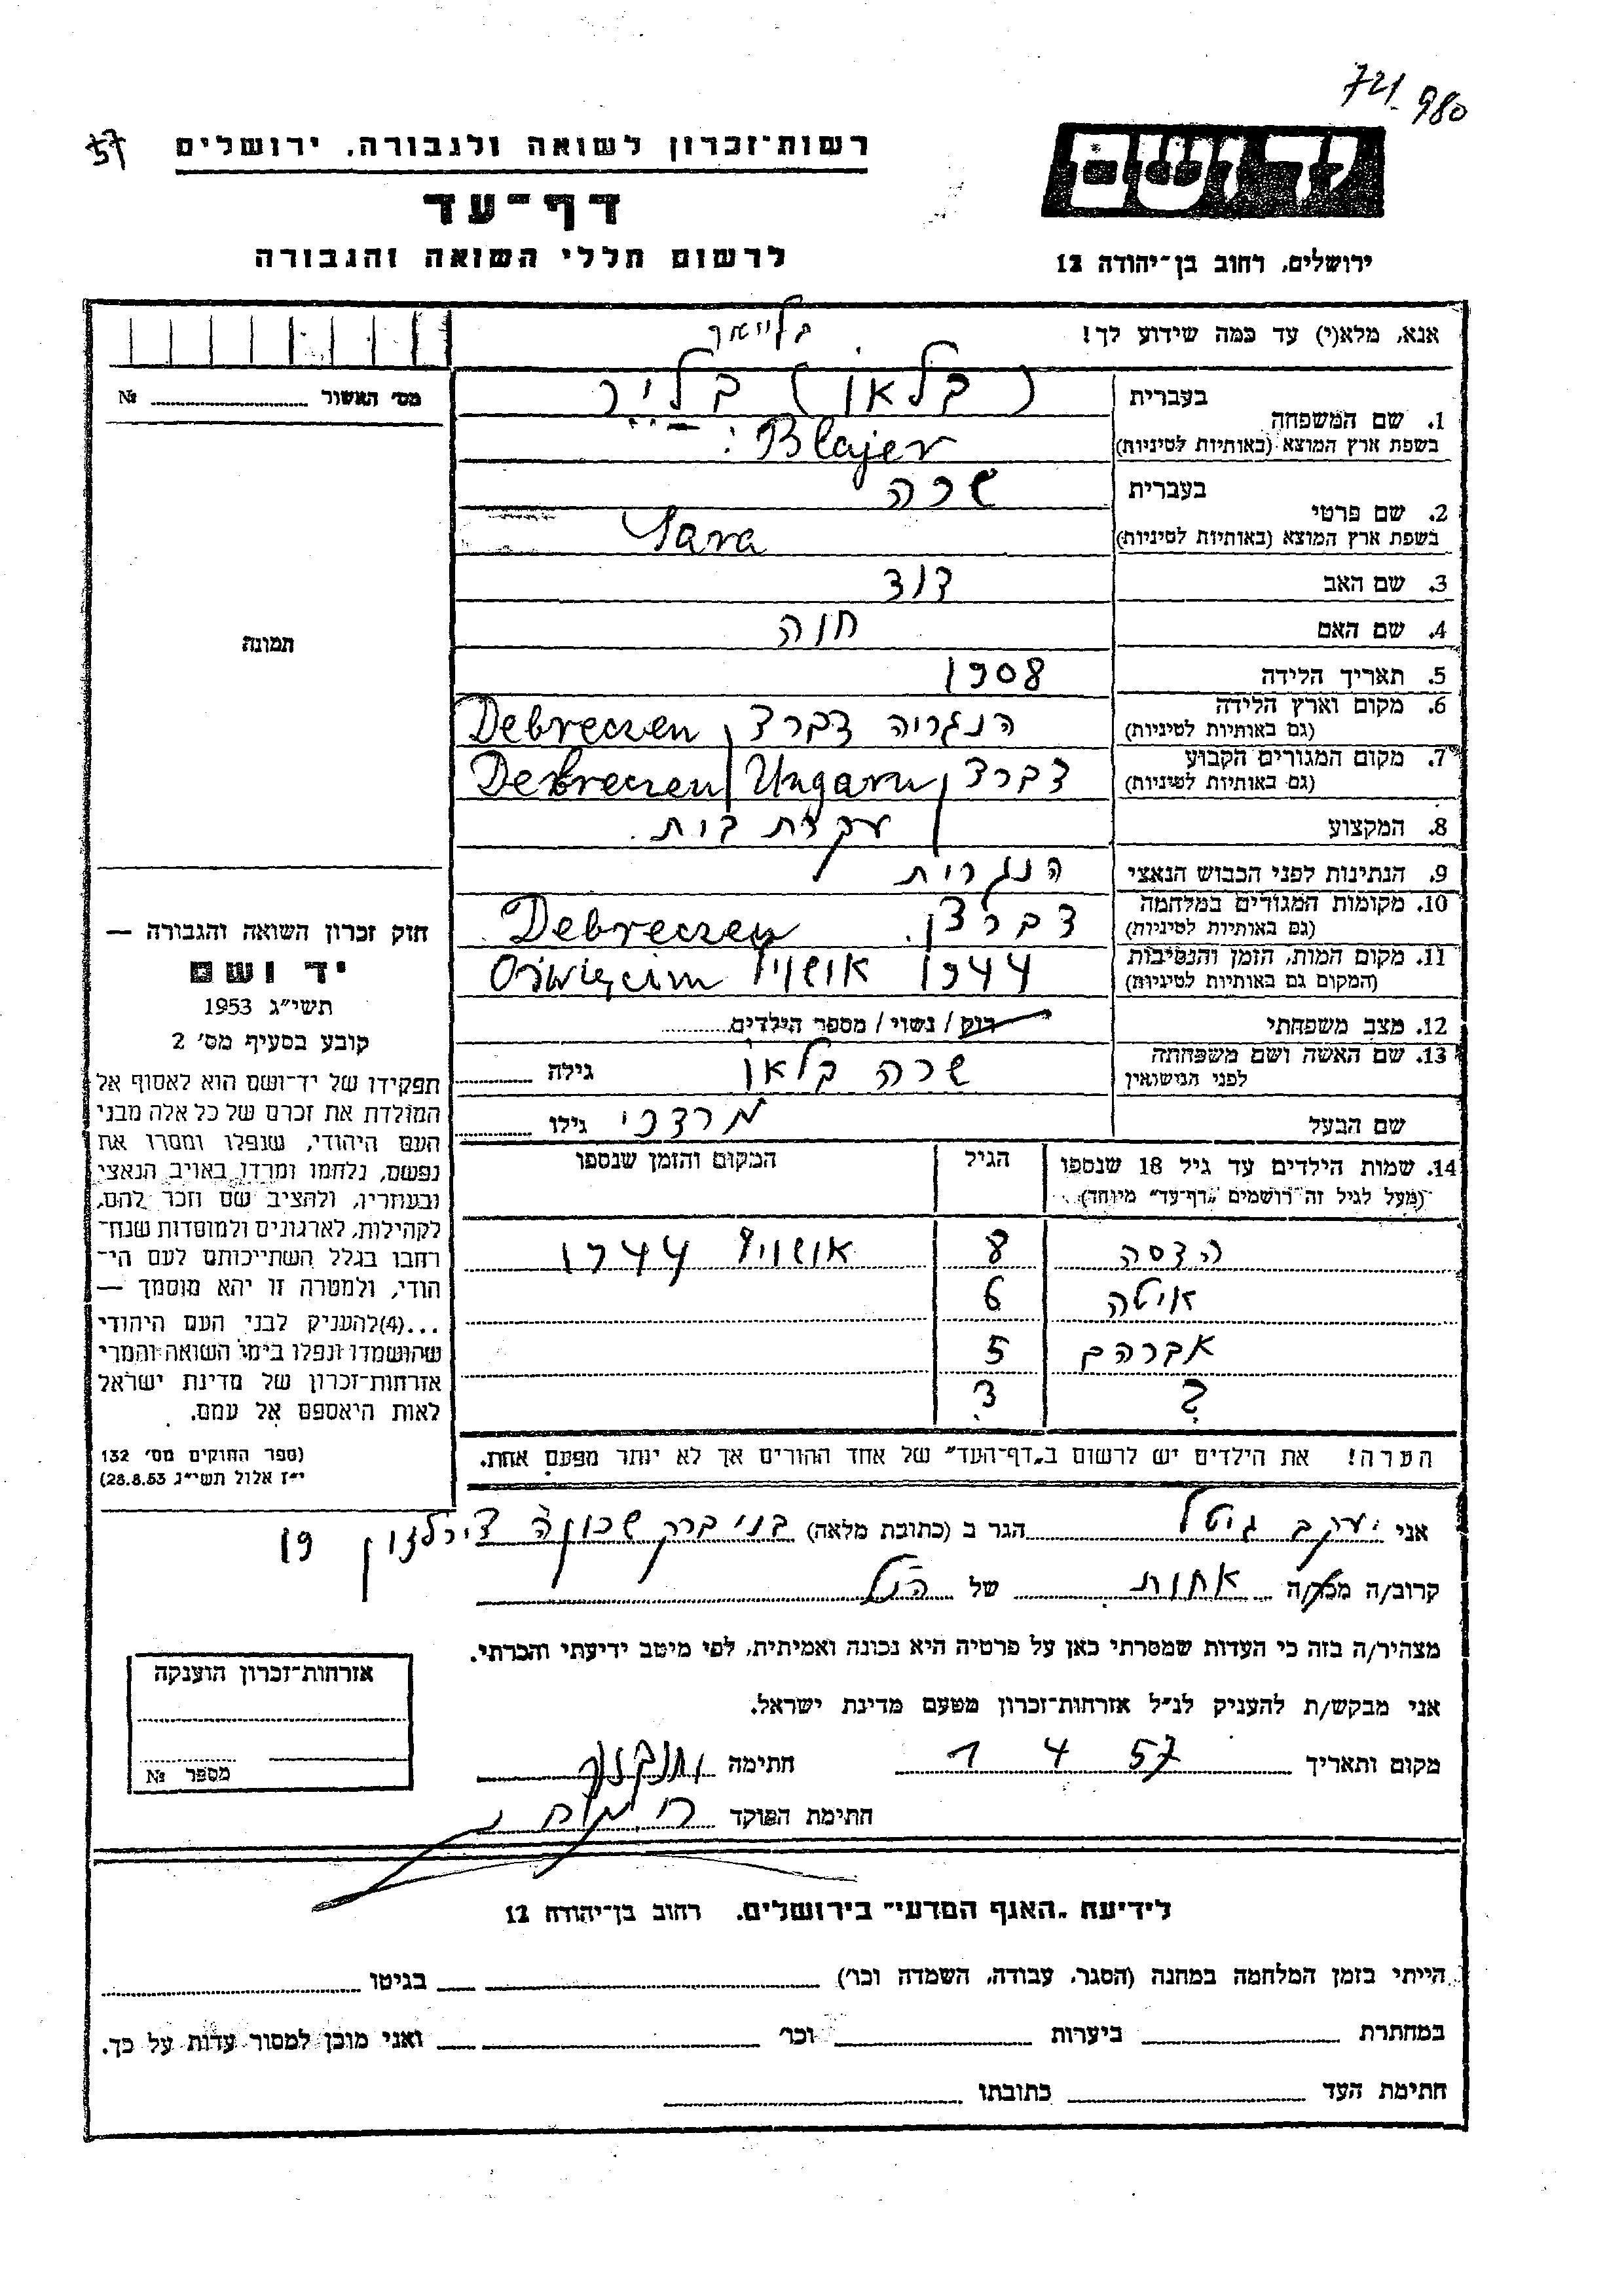 721 980
57
רשות־זכרון לשואה ולגבורה, ירושלים
דף־עד
לרשום חללי השואה והגבורה
יד ושם
ירושלים, רחוב בן־יהודה 12
אנא, מלא(י) עד כמה שידוע לך!
מס׳ האשור №
תמונה
1. שם המשפחה
בעברית (בלאו) בליר
בשפת ארץ המוצא (באותיות לטיניות) Blajer
2. שם פרטי
בעברית שרה
בשפת ארץ המוצא (באותיות לטיניות) Sara
3. שם האב דוד
4. שם האם חוה
5. תאריך הלידה 1908
6. מקום וארץ הלידה (גם באותיות לטיניות) הנגריה דברצן Debreczen
7. מקום המגורים הקבוע (גם באותיות לטיניות) דברצן Ungarn Debreczen
8. המקצוע עקרת בית.
9. הנתינות לפני הכבוש הנאצי הנגרית
10. מקומות המגורים במלחמה (גם באותיות לטיניות) דברצן. Debreczen
11. מקום המות, הזמן והנסיבות (המקום גם באותיות לטיניות) 1944 אושויץ Oświęcim
12. מצב משפחתי רוק / נשוי / מספר הילדים
13. שם האשה ושם משפחתה לפני הנישואין שרה בלאו גילה
שם הבעל מרדכי גילו
14. שמות הילדים עד גיל 18 שנספו הגיל המקום והזמן שנספו
(מעל לגיל זה רושמים „דף־עד״ מיוחד)
הדסה 8 אושויץ 1944
איטה 6
אברהם 5
? 3
הערה! את הילדים יש לרשום ב„דף־העד״ של אחד ההורים אך לא יותר מפעם אחת.
חוק זכרון השואה והגבורה —
יד ושם
תשי״ג 1953
קובע בסעיף מס׳ 2
תפקידו של יד־ושם הוא לאסוף אל
המולדת את זכרם של כל אלה מבני
העם היהודי, שנפלו ומסרו את
נפשם, נלחמו ומרדו באויב הנאצי
ובעוזריו, ולהציב שם וזכר להם,
לקהילות, לארגונים ולמוסדות שנח־
רחבו בגלל השתייכותם לעם הי־
הודי, ולמטרה זו יהא מוסמך —
...(4)להעניק לבני העם היהודי
שהושמדו ונפלו בימי השואה והמרי
אזרחות־זכרון של מדינת ישראל
לאות היאספם אל עמם.
(ספר החוקים מס׳ 132
י״ז אלול תשי״ג 28.8.53)
אני יעקב גיטל הגר ב (כתובת מלאה) בני ברק שכונה 19
קרוב/ה מכר/ה אחות של הנ״ל
מצהיר/ה בזה כי העדות שמסרתי כאן על פרטיה היא נכונה ואמיתית, לפי מיטב ידיעתי והכרתי.
אני מבקש/ת להעניק לנ״ל אזרחות־זכרון מטעם מדינת ישראל.
מקום ותאריך 1 4 57 חתימה
חתימת הפוקד
אזרחות־זכרון הוענקה
מספר №
לידיעת „האגף המדעי״ בירושלים. רחוב בן־יהודה 12
הייתי בזמן המלחמה במחנה (הסגר, עבודה, השמדה וכו׳) בגיטו
במחתרת ביערות וכו׳ ואני מוכן למסור עדות על כך.
חתימת העד כתובתו